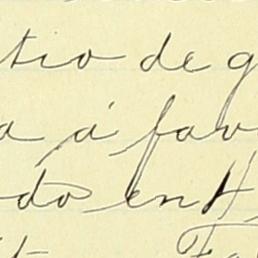 tio de g
a á fav
do en H